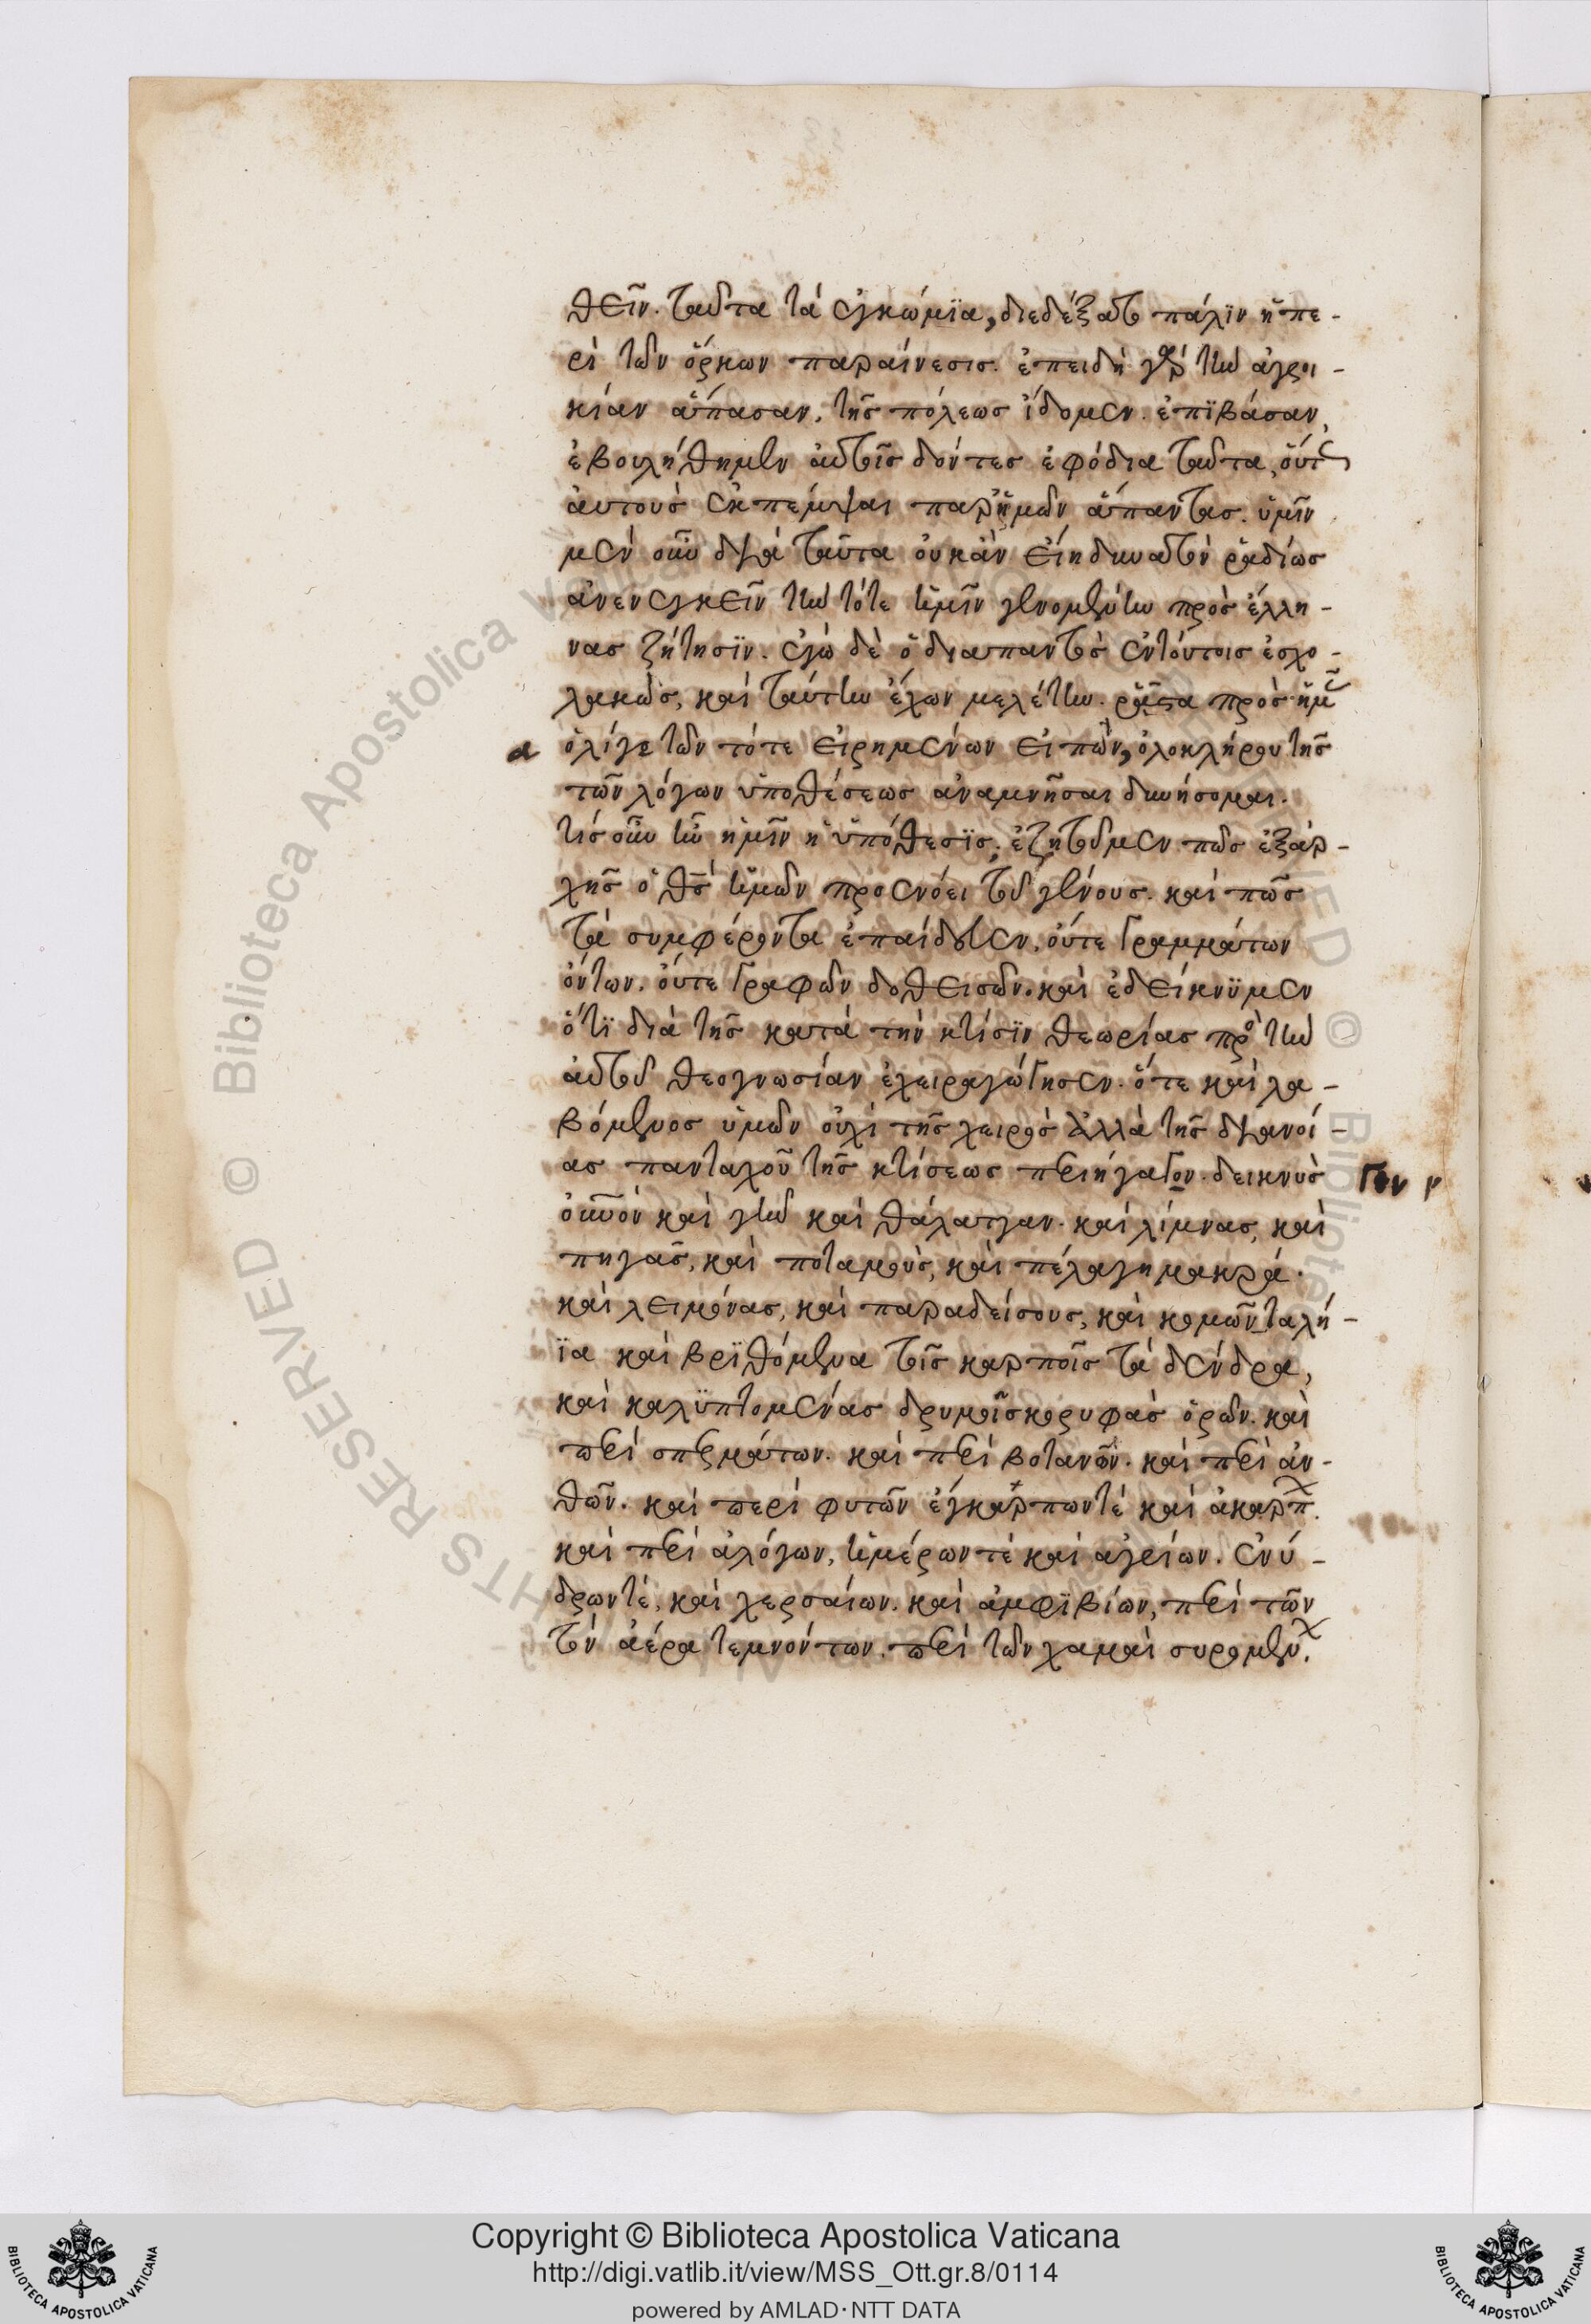 θεῖν. ταῦτα τὰ ἐγκώμϊα, διεδέξατο πάλϊν ἡ πε-
ρὶ τῶν ὅρκων παραίνεσις. ἐπειδὴ γὰρ τὴν ἀγροι-
κίαν ἅπασαν, τῆς πόλεως ἴδομεν. ἐπϊβάσαν,
ἐβουλήθημεν αὐτοῖς δόντες ἐφόδια ταῦτα, οὕτως
αυτοὺς ἐκπέμψαι παρ' ἡμῶν ἅπαντας. ὑμῖν
μὲν οὖν διὰ ταῦτα οὐκ ἂν εἴη δυνατὸν ῥαδίως
ἀνενεγκεῖν τὴν τότε ἡμῖν γενομένην πρὸς ἕλλη-
νας ζήτησϊν. ἐγὼ δὲ ὁ διαπαντὸς ἐν τούτοις ἐσχο-
λακὼς, καὶ ταύτην ἔχων μελέτην. ῥᾷστα πρὸς ἡμᾶς
α ὀλίγα τῶν τότε εἰρημένων εἰπὼν, ὁλοκλήρου τῆς
τῶν λόγων ὑποθέσεως ἀναμνῆσαι δυνήσομαι.
τίς οὖν ἦν ἡμῖν ἡ ὑπόθεσϊς; ἐζητοῦμεν πῶς ἐξ ἀρ-
χῆς ὁ θς ἡμῶν προενόει τοῦ γένους. καὶ πῶς
τὰ συμφέροντα ἐπαίδευεν, οὔτε γραμμάτων
ὄντων. οὔτε γραφῶν δοθεισῶν. καὶ ἐδείκνϋμεν
ὅτϊ διὰ τῆς κατὰ τὴν κτίσϊν θεωρίας πρὸς τὴν
αὐτοῦ θεογνωσίαν ἐχειραγώγησεν. ὅτε καὶ λα-
βόμενος ὑμῶν οὐχὶ τῆς χειρὸς ἀλλὰ τῆς διανοί-
ας πανταχοῦ τῆς κτίσεως περιήγαγον. δεικνὺς γον
οὐνὸν καὶ γῆν καὶ θάλατταν. καὶ λίμνας, καὶ
πηγὰς, καὶ ποταμοὺς, καὶ πέλαγη μακρά.
καὶ λειμόνας, καὶ παραδείσους, καὶ κομῶντα λή-
ϊα καὶ βρϊθόμενα τοῖς καρποῖς τὰ δένδρα,
καὶ καλϋπτομένας δρυμοῖς κορυφὰς ὀρῶν. καὶ
περὶ σπερμάτων. καὶ περὶ βοτανῶν. καὶ περὶ ἀν-
θῶν. καὶ περὶ φυτῶν ἐγκάρπων τὲ καὶ ἀκάρπων.
καὶ περὶ ἀλόγων, ἡμέρων τὲ καὶ αγρίων. ἐνύ-
δρων τὲ, καὶ χερσαίων. καὶ ἀμφϊβίων, περὶ τῶν
τὸν ἀέρα τεμνόντων. περὶ τῶν χαμαὶ συρομένων.
Copyright © Biblioteca Apostolica Vaticana
http://digi.vatlib.it/view/MSS_Ott.gr.8/0114
powered by AMLAD·NTT DATA